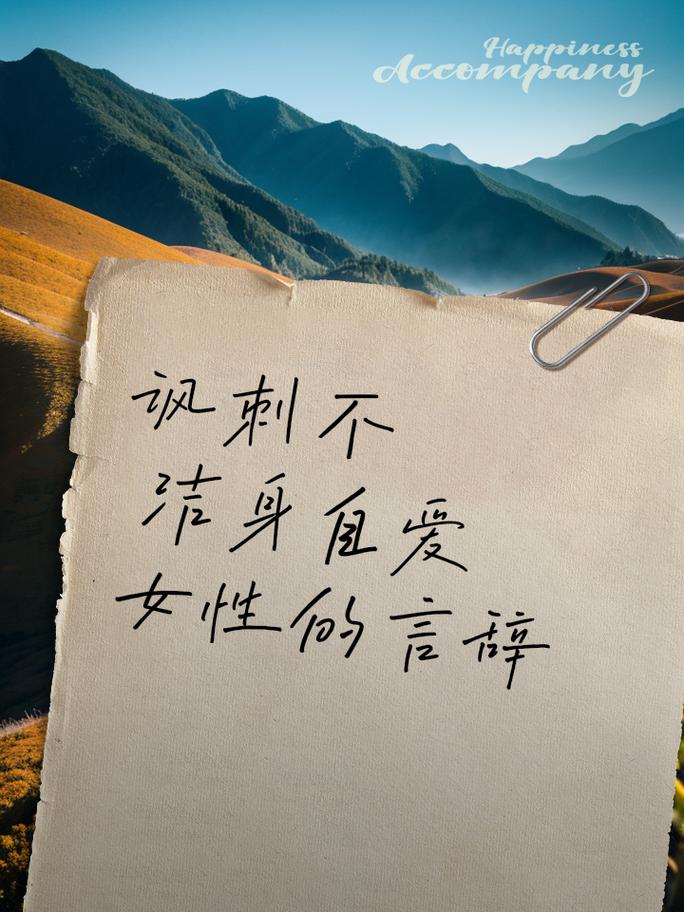 Happiness
Accompany
讽刺不
洁身自爱
女性的言辞